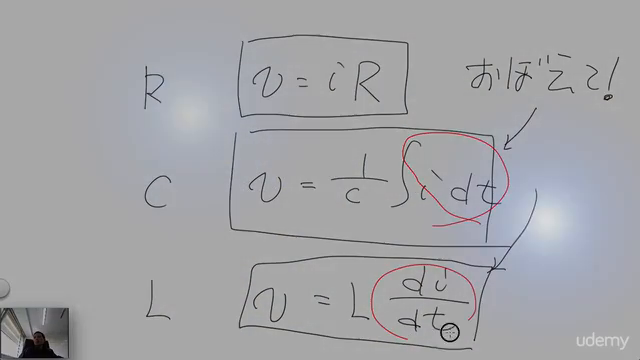 R v = iR おぼえて!
C v = 1/C ∫ i dt
L v = L di/dt
udemy